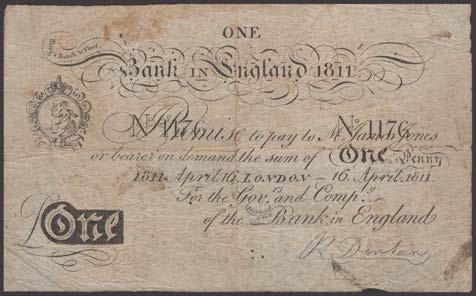 ONE
King's Bench & Fleet
Bank in England 1811
No. 1176 No. 1176
I Promise to pay to Mr. James Jones
or bearer on demand the sum of One Penny
1811 April 16 LONDON - 16 April 1811
For the Govr. and Compy.
of the Bank in England
£One
R Denton